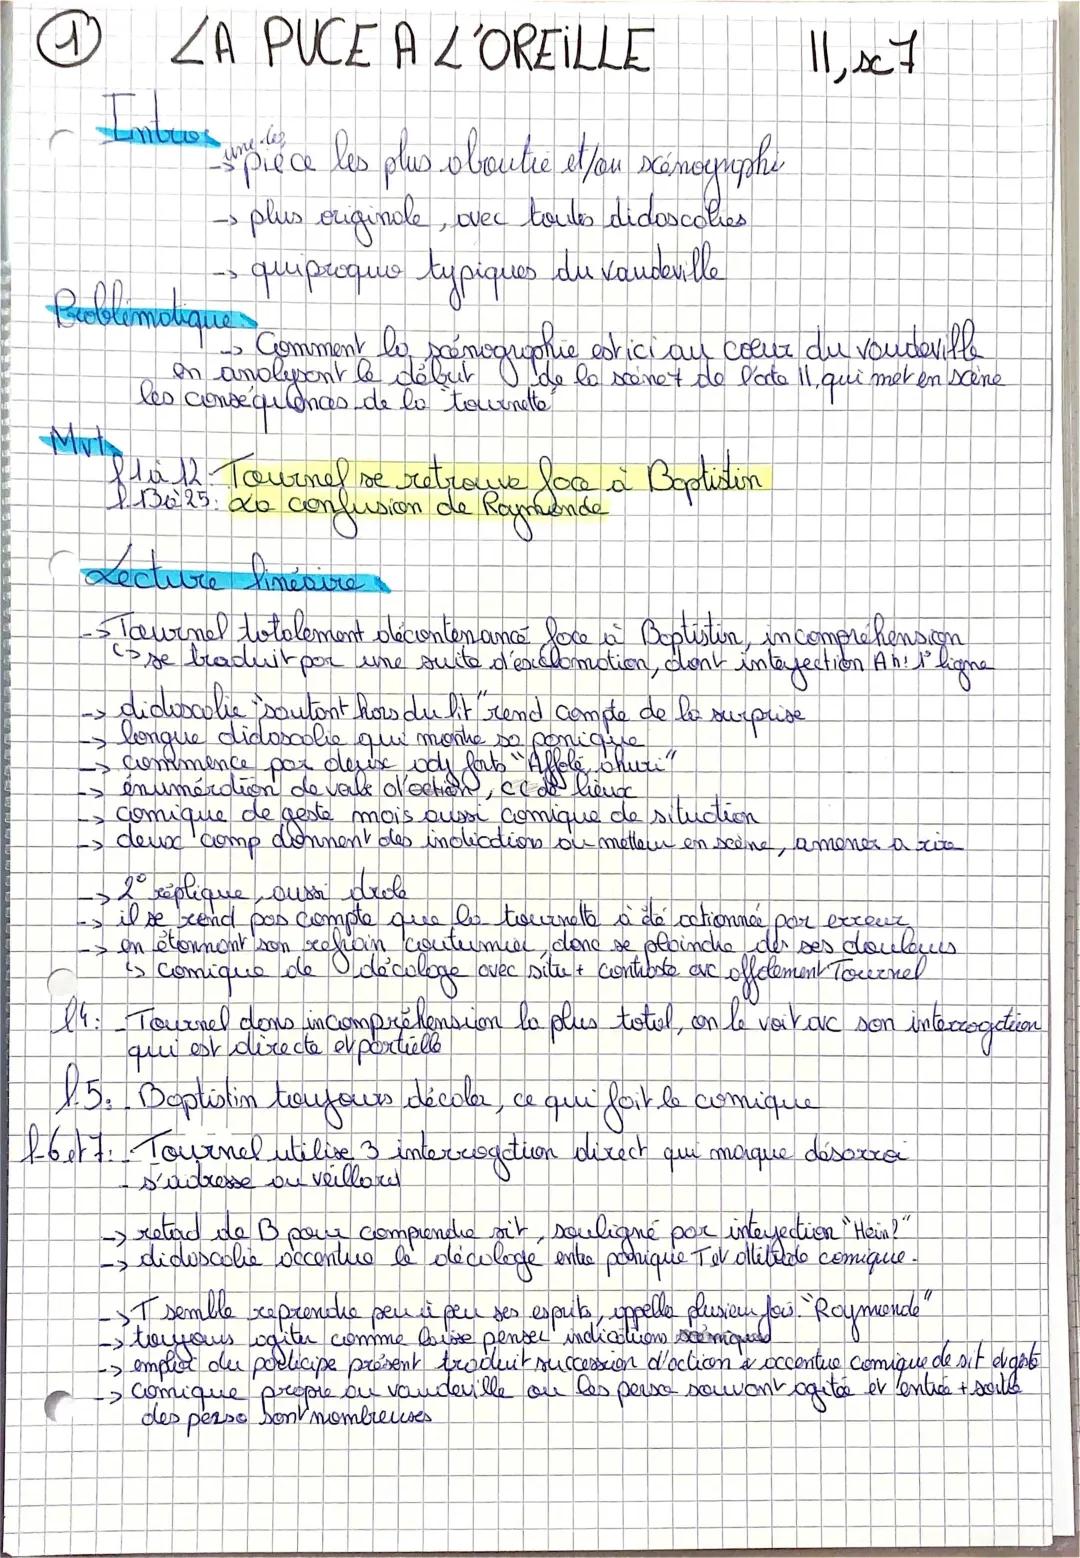 1 LA PUCE A L'OREILLE II, sc7
Intro
une des
-> pièce les plus aboutie et/ou scénographi
-> plus originale, avec toutes didascalies
-> quiproquo typiques du vaudeville
Problématique
-> Comment la scénographie est ici au coeur du vaudeville
en analysant le début de la scène 7 de l'acte II, qui met en scène
les conséquences de la "tournette"
Mvt
l 1 à 12: Tournel se retrouve face à Baptistin
l. 13 à 25: La confusion de Raymonde
Lecture linéaire
-> Tournel totalement décontenancé face à Baptistin, incompréhension
↳ se traduit par une suite d'exclamation, dont interjection Ah! 1° ligne
-> didascalie "sautant hors du lit" rend compte de la surprise
-> longue didascalie qui montre sa panique
-> commence par deux adj forts "Affolé, ahuri"
-> énumération de verbe d'action, cc de lieux
-> comique de geste mais aussi comique de situation
-> deux comp donnent des indication au metteur en scène, amener a rire
-> 2° réplique, aussi drole
-> il se rend pas compte que la tournette à été actionnée par erreur
-> en étonnant son refrain coutumier, donc se plaindre de ses douleurs
↳ comique de décalage avec situ + contraste avc affolement Tournel
l4: - Tournel dans incompréhension la plus total, on le voit avc son interrogation
qui est directe et partielle
l.5: - Baptistin toujours décaler, ce qui fait le comique
l.6 et 7: - Tournel utilise 3 interrogation direct qui marque désarroi
- s'adresse au veillard
-> retard de B pour comprendre sit, souligné par interjection "Hein?"
-> didascalie accentue le décalage entre panique T et attitude comique.
-> T semble reprendre peu à peu ses esprits, appelle plusieur fois "Raymonde"
-> toujours agiter comme laisse penser indications scéniques
-> emploi du participe présent traduit succession d'action & accentue comique de sit et geste
-> comique propre au vaudeville ou les perso souvent agité et entrée + sortie
des perso sont nombreuses